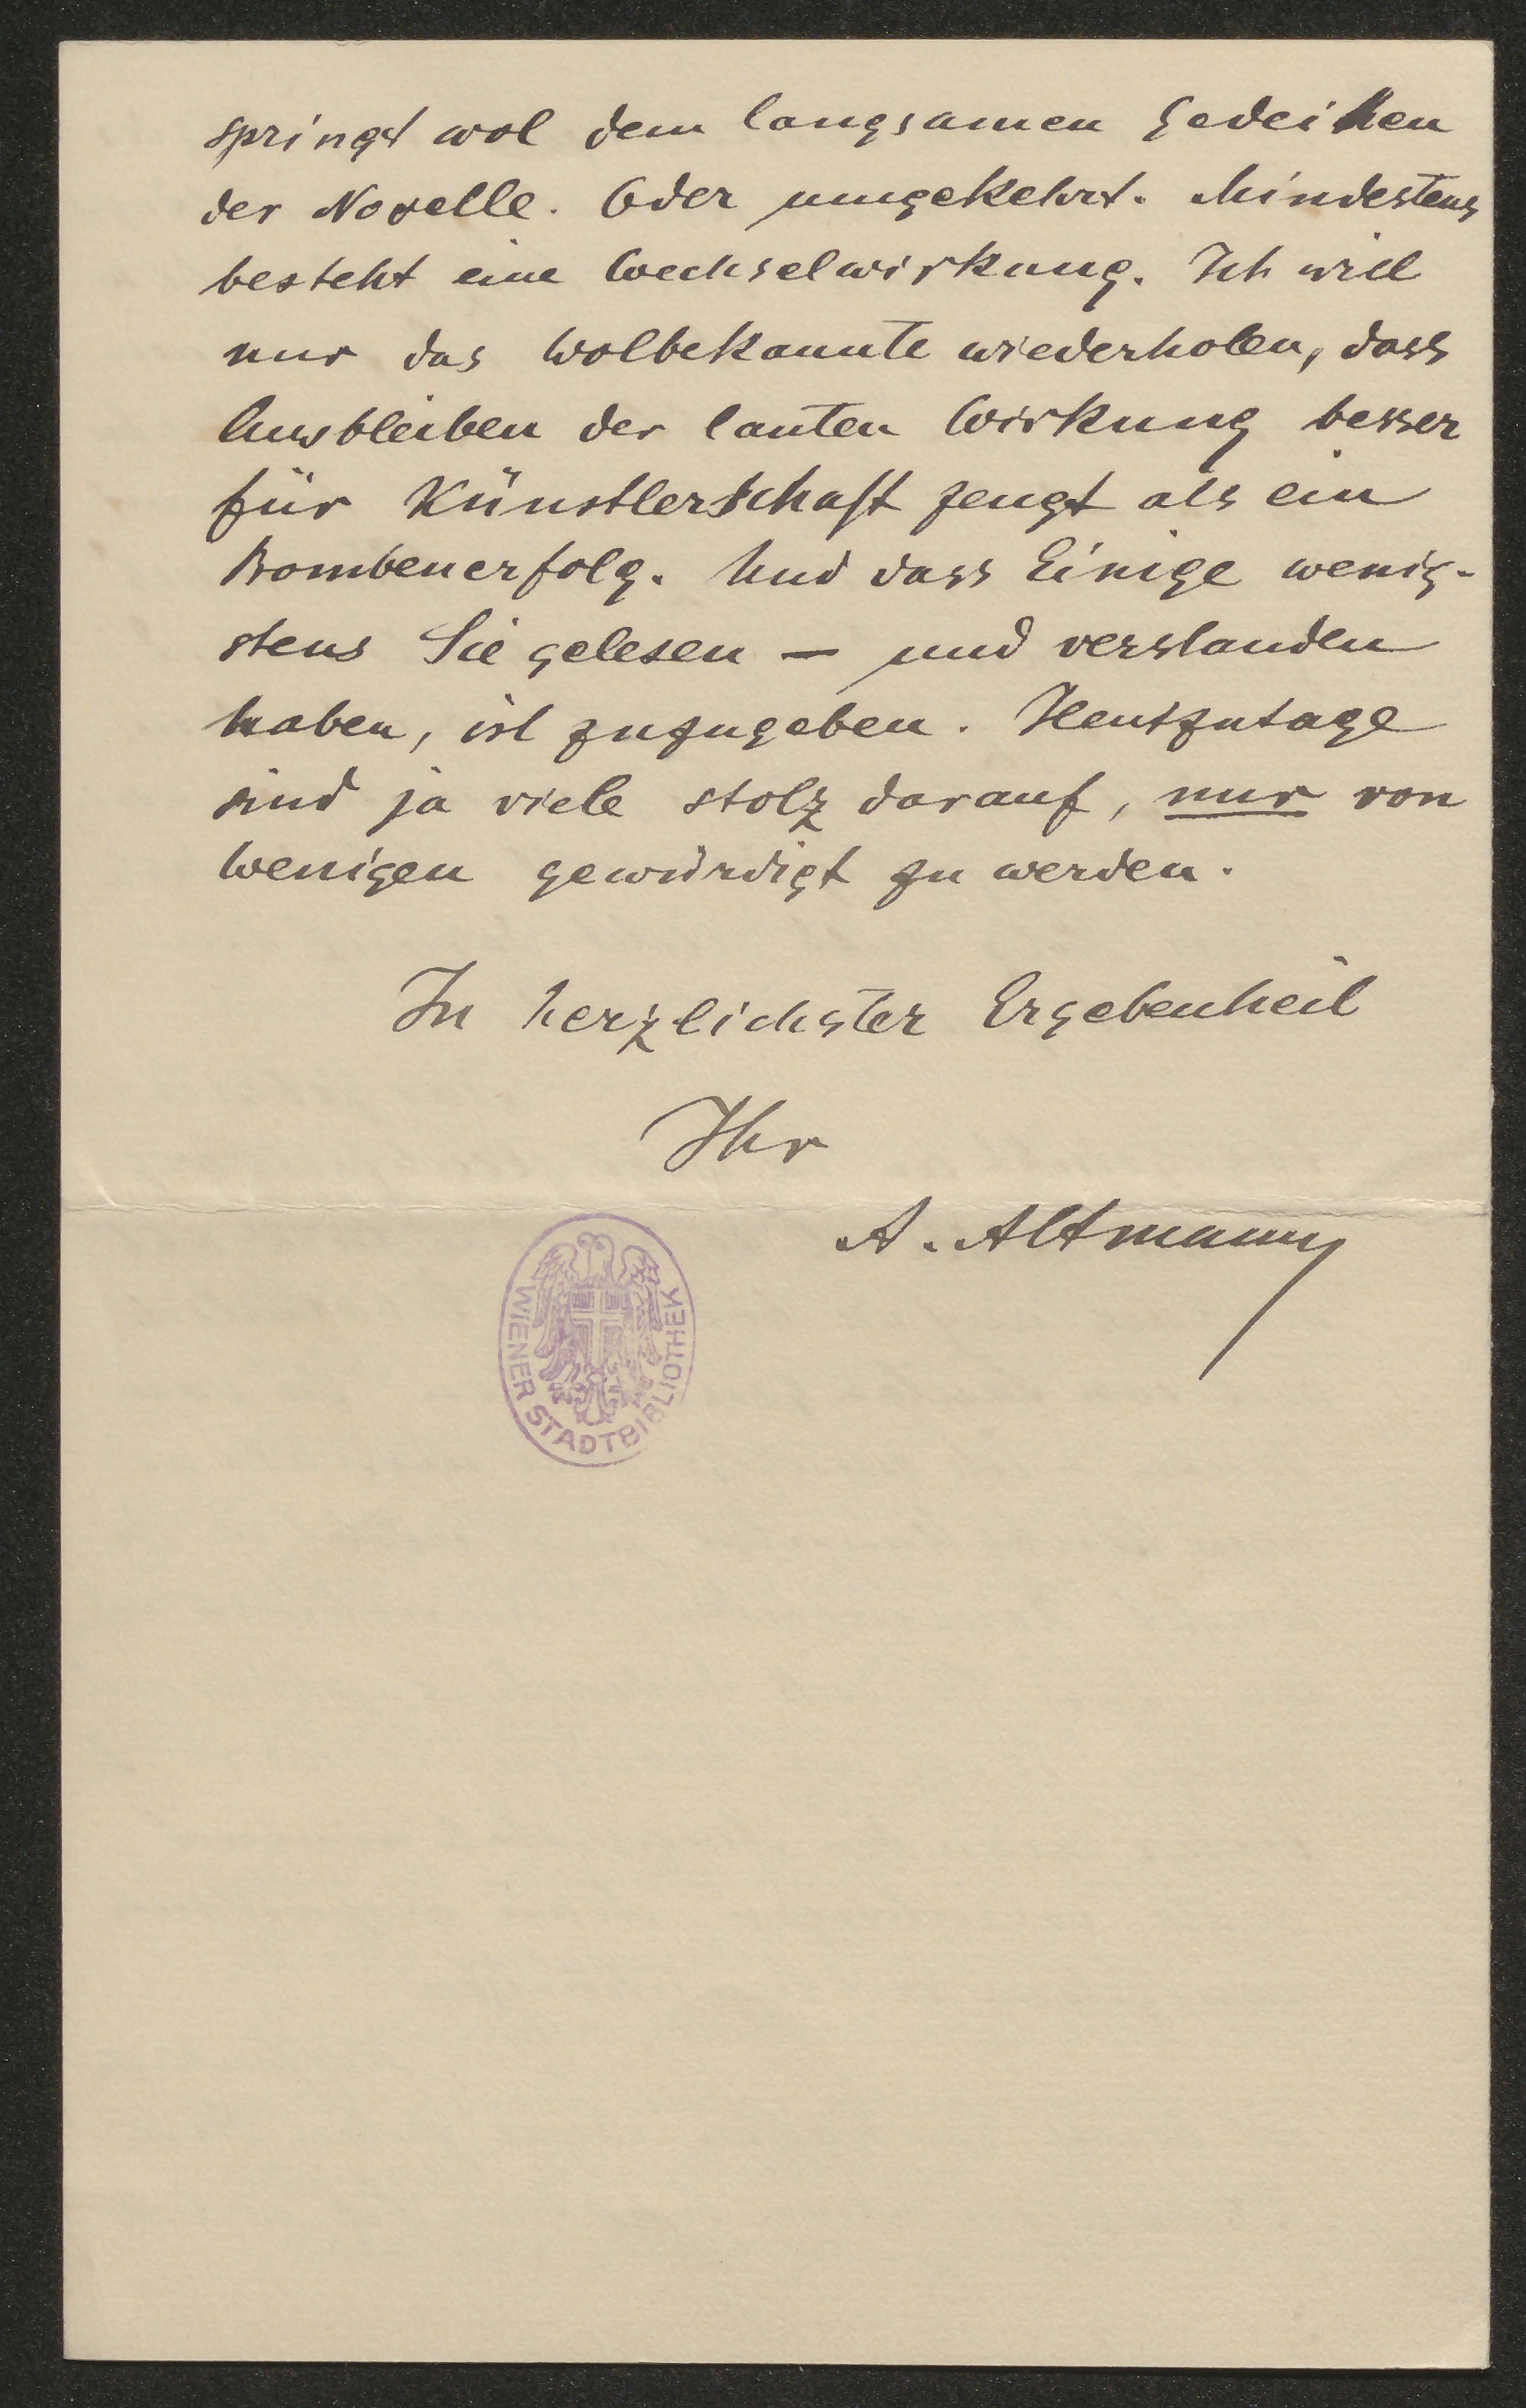 springt wol dem langsamen Gedeihen
der Novelle. Oder umgekehrt. Mindestens
besteht eine Wechselwirkung. Ich will
nur das Wolbekannte wiederholen, dass
Ausbleiben der lauten Wirkung besser
für Künstlerschaft zeugt als ein
Bombenerfolg. Und dass Einige wenig-
stens Sie gelesen — und verstanden
haben, ist zuzugeben. Heutzutage
sind ja viele stolz darauf, nur von
Wenigen gewürdigt zu werden.
In herzlichster Ergebenheit
Ihr
A. Altmann
WIENER STADTBIBLIOTHEK